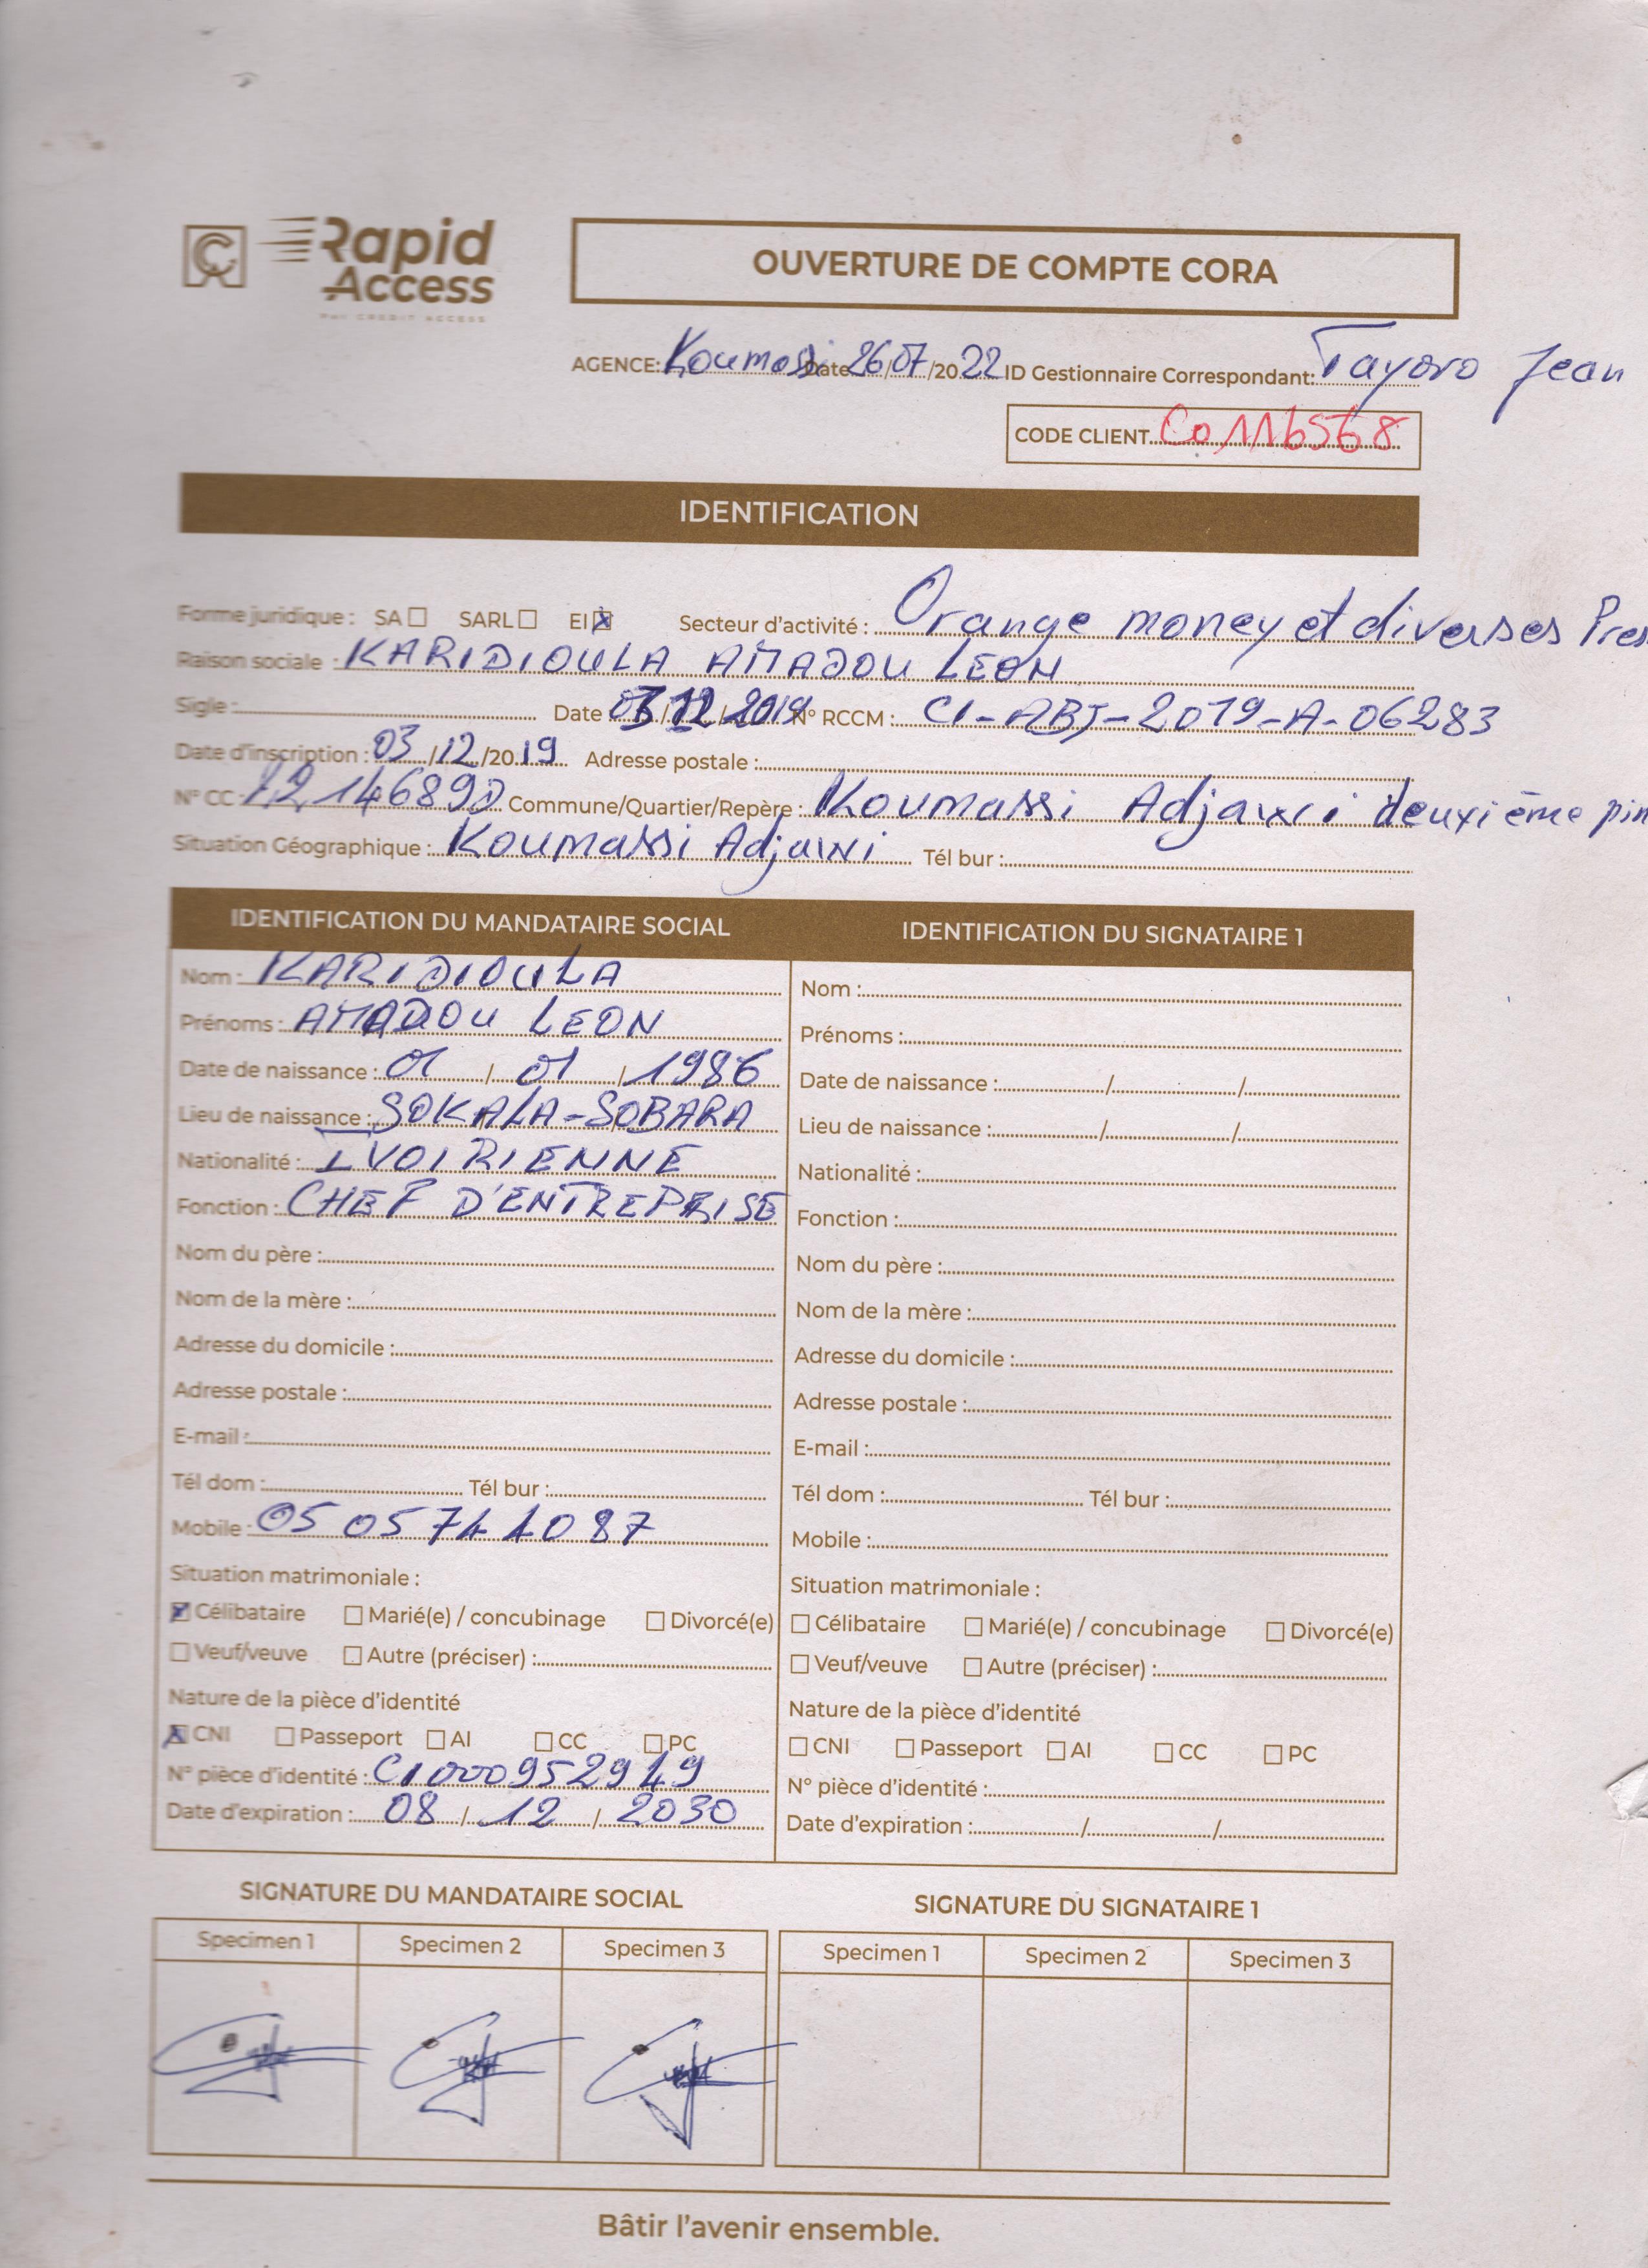 CA Rapid Access
PAR CREDIT ACCESS
OUVERTURE DE COMPTE CORA
AGENCE: Koumassi Date 26/07/2022 ID Gestionnaire Correspondant: Tayoro Jean
CODE CLIENT C0116568
IDENTIFICATION
Forme juridique : SA ☐ SARL ☐ EI ☒ Secteur d'activité : Orange money et diverses Pres
Raison sociale : KARIDIOULA AMADOU LEON
Sigle : Date 03/12/2019 N° RCCM : CI-ABJ-2019-A-06283
Date d'inscription : 03/12/2019 Adresse postale :
N° CC Commune/Quartier/Repère : Koumassi Adjawi deuxième pin
Situation Géographique : Koumassi Adjawi Tél bur :
IDENTIFICATION DU MANDATAIRE SOCIAL
Nom : KARIDIOULA
Prénoms : AMADOU LEON
Date de naissance : 01/01/1986
Lieu de naissance : SOKALA-SOBARA
Nationalité : IVOIRIENNE
Fonction : CHEF D'ENTREPRISE
Nom du père :
Nom de la mère :
Adresse du domicile :
Adresse postale :
E-mail :
Tél dom : Tél bur :
Mobile : 05 05 74 40 87
Situation matrimoniale :
☒ Célibataire ☐ Marié(e) / concubinage ☐ Divorcé(e)
☐ Veuf/veuve ☐ Autre (préciser) :
Nature de la pièce d'identité
☒ CNI ☐ Passeport ☐ AI ☐ CC ☐ PC
N° pièce d'identité : CI000952949
Date d'expiration : 08/12/2030
IDENTIFICATION DU SIGNATAIRE 1
Nom :
Prénoms :
Date de naissance : / /
Lieu de naissance : / /
Nationalité :
Fonction :
Nom du père :
Nom de la mère :
Adresse du domicile :
Adresse postale :
E-mail :
Tél dom : Tél bur :
Mobile :
Situation matrimoniale :
☐ Célibataire ☐ Marié(e) / concubinage ☐ Divorcé(e)
☐ Veuf/veuve ☐ Autre (préciser) :
Nature de la pièce d'identité
☐ CNI ☐ Passeport ☐ AI ☐ CC ☐ PC
N° pièce d'identité :
Date d'expiration : / /
SIGNATURE DU MANDATAIRE SOCIAL
Specimen 1 Specimen 2 Specimen 3
SIGNATURE DU SIGNATAIRE 1
Specimen 1 Specimen 2 Specimen 3
Bâtir l'avenir ensemble.